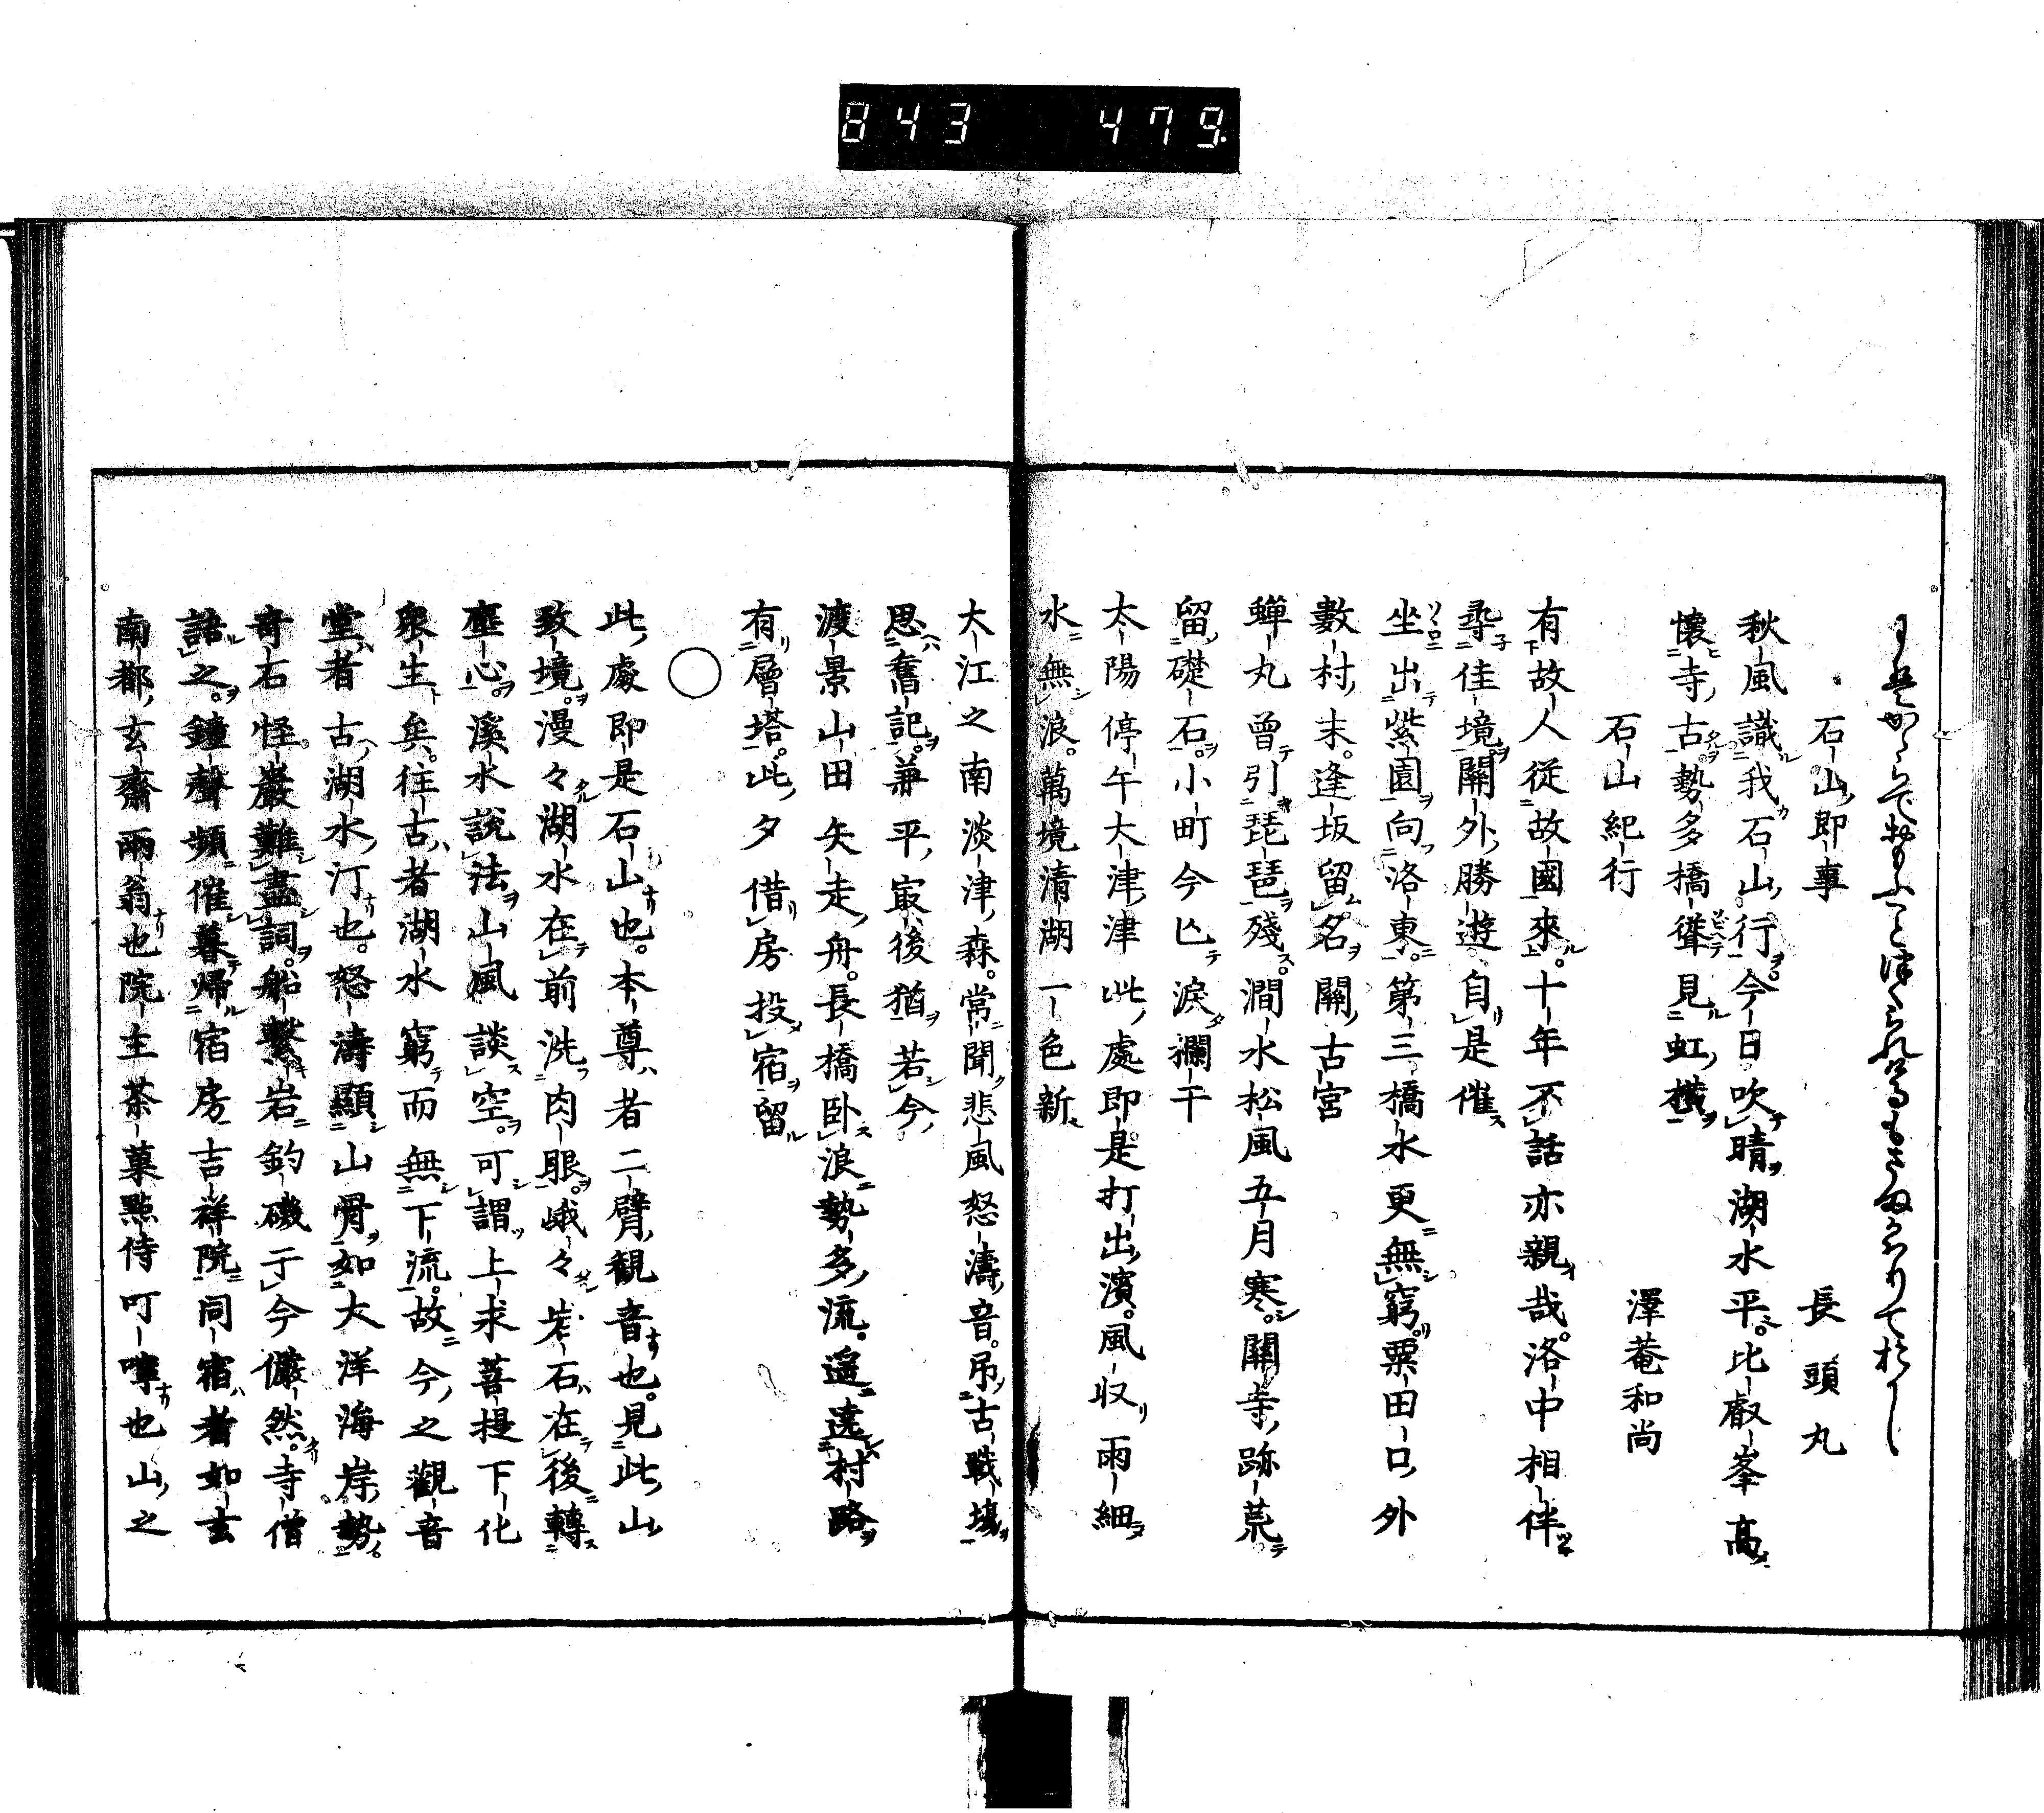 843 479.
石山即事 長頭丸
秋風識我石山行今日吹晴湖水平比叡峯高
懐寺古勢多橋聳見虹横
石山紀行 澤菴和尚
有故人從故國來十年不話亦親哉洛中相伴
尋佳境關外勝遊自是催
坐出紫園向洛東第三橋水更無窮粟田口外
數村末逢坂留名關古宮
蟬丸曾引琵琶殘澗水松風五月寒關寺跡荒
留礎石小町今亾淚瀾干
太陽停午大津津此處即是打出濱風収雨細
水無浪萬境清湖一色新
大江之南淡津森常聞悲風怒濤音吊古戰場
思舊記兼平冣後猶若今
渡景山田矢走舟長橋卧浪勢多流遥遠村路
有層塔此夕借房投宿留
○
此處即是石山也本尊者二臂観音也見此山
致境漫々湖水在前洗肉眼峨々岩石在後轉
塵心溪水說法山風談空可謂上求菩提下化
衆生矣往古者湖水窮而無下流故今之觀音
堂者古湖水汀也怒濤顯山骨如大洋海岸勢
奇石怪巖難盡詞船繫岩釣磯于今儼然寺僧
語之鐘聲頻催暮帰宿房吉祥院同宿者如玄
南都玄齋兩翁也院主茶菓點侍叮嚀也山之